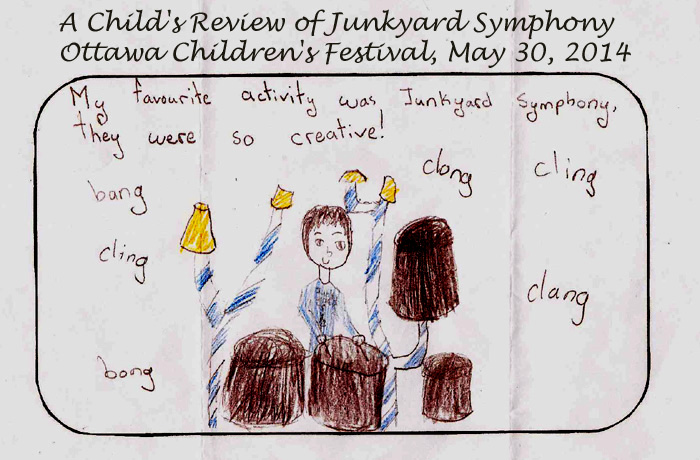 A Child's Review of Junkyard Symphony
Ottawa Children's Festival, May 30, 2014
My favourite activity was Junkyard Symphony,
they were so creative!
clong cling
bang
cling
clang
bong